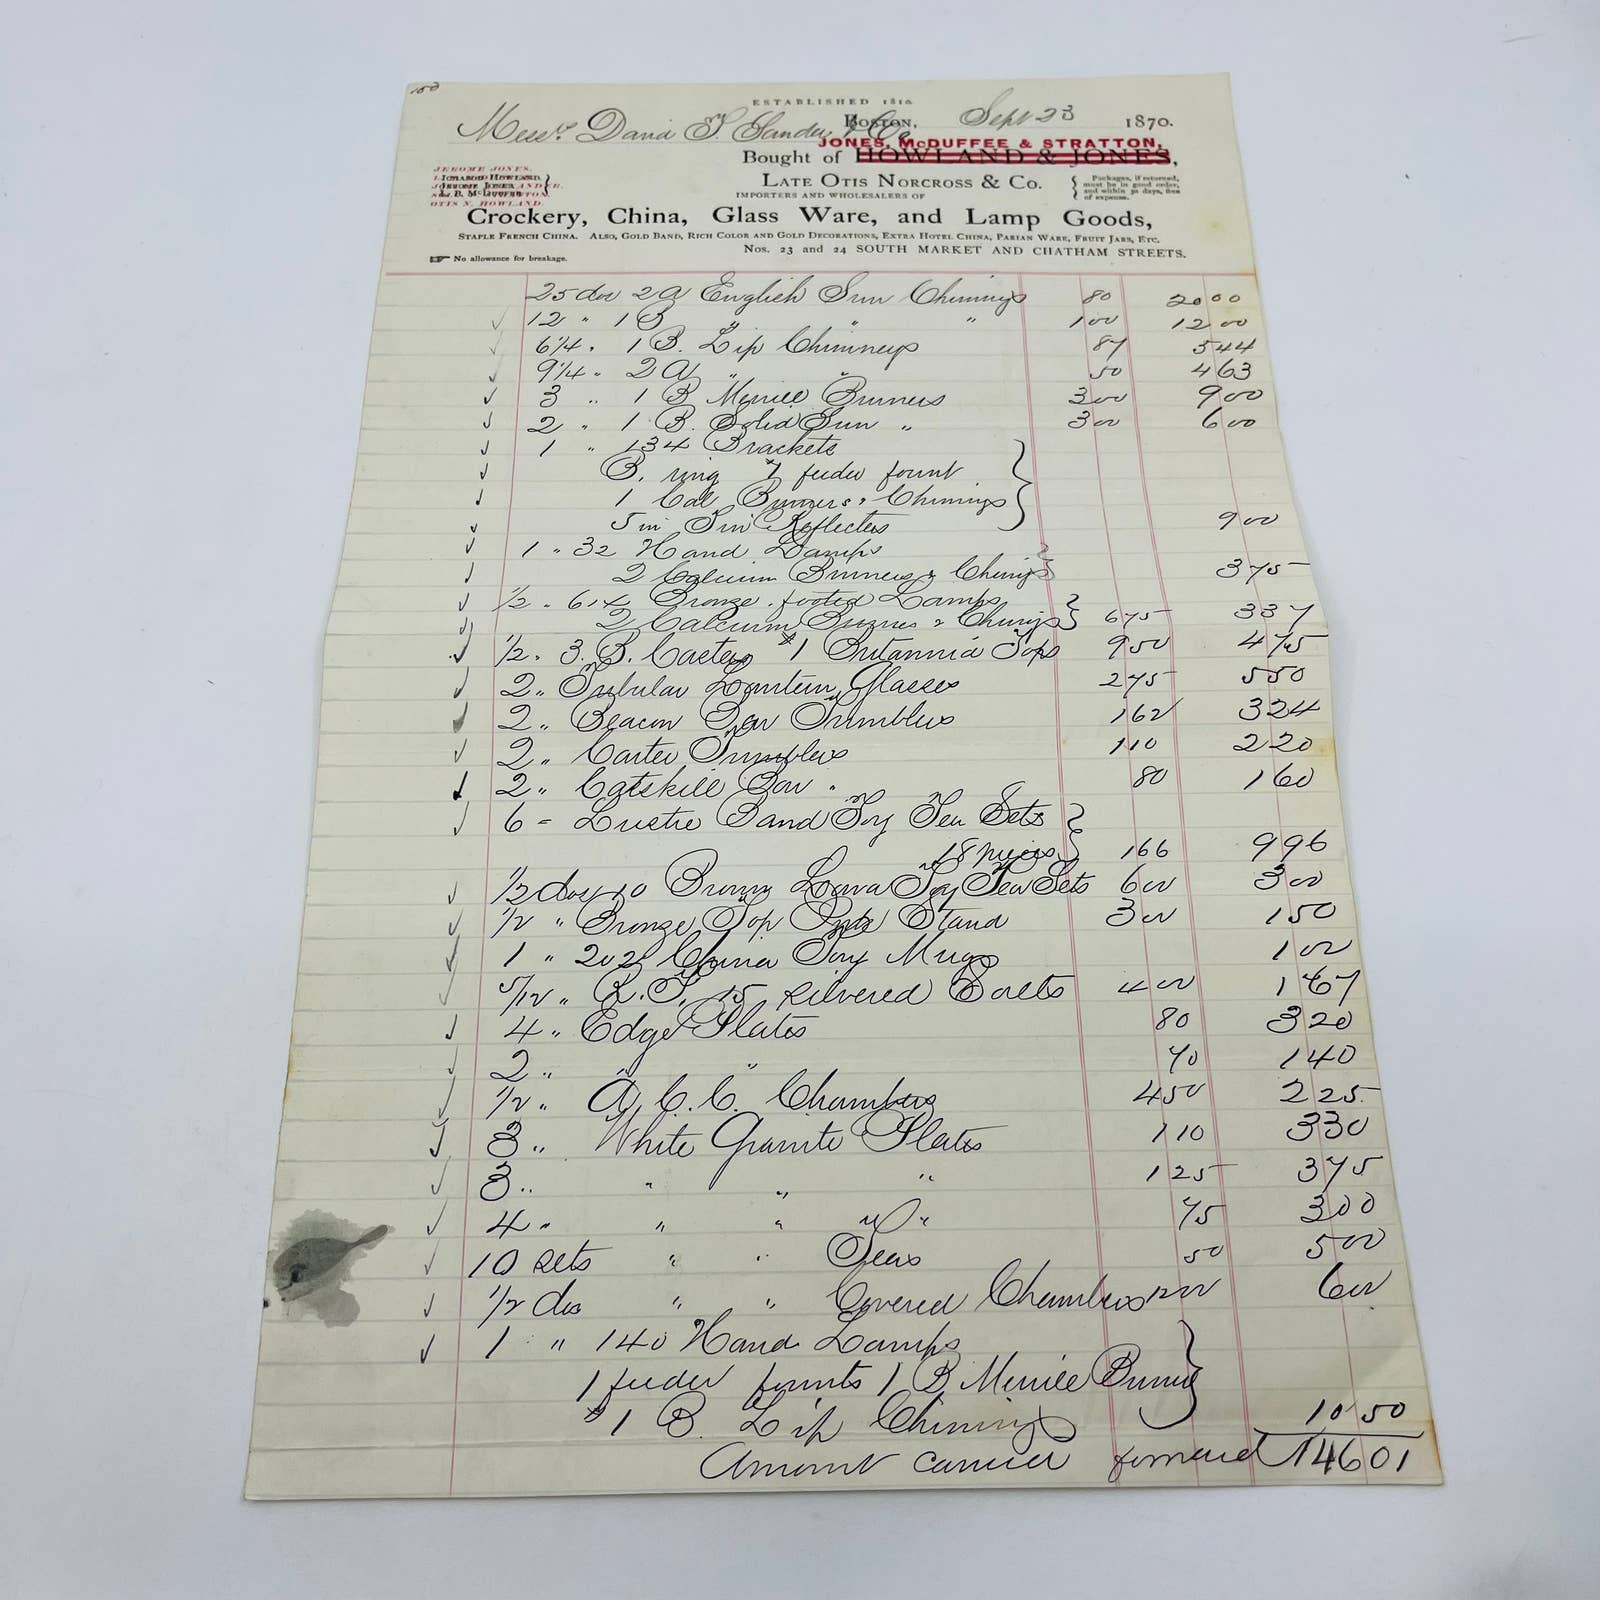 150
ESTABLISHED 1810.
Messrs David T. & Co BOSTON, Sept 23 1870.
JONES, McDUFFEE & STRATTON,
Bought of HOWLAND & JONES,
JEROME JONES.
ICHABOD HOWLAND.
JEROME JONES.
L. B. McDUFFEE
OTIS N. HOWLAND.
LATE OTIS NORCROSS & CO.
Packages, if returned, must be in good order, and within 30 days, free of expense.
IMPORTERS AND WHOLESALERS OF
Crockery, China, Glass Ware, and Lamp Goods,
STAPLE FRENCH CHINA. ALSO, GOLD BAND, RICH COLOR AND GOLD DECORATIONS, EXTRA HOTEL CHINA, PARIAN WARE, FRUIT JARS, ETC.
Nos. 23 and 24 SOUTH MARKET AND CHATHAM STREETS.
No allowance for breakage.
25 doz 2 A English Sun Chimnys 80 20 00
12 " 1 B " " " 1 00 12 00
6 1/4 " 1 B. Lip Chimneys 87 5 44
9 1/4 " 2 A " " 50 4 63
3 " 1 B Merrill Burners 3 00 9 00
2 " 1 B. Solid Sun " 3 00 6 00
1 " 134 Brackets
B. ring & feeder fount
1 Cal Burners & Chimnys
5 in Tin Reflectors 9 00
1 " 32 Hand Lamps
2 Calcium Burners & Chimys 3 75
1/2 " 614 Bronze footed Lamps
2 Calcium Burners & Chimys 6 75 3 37
1/2 " 3. B. Casters #1 Britannia Tops 9 50 4 75
2 " Tubular Lantern Glasses 2 75 5 50
2 " Beacon Bar Tumblers 1 62 3 24
2 " Carter Tumblers 1 10 2 20
2 " Catskill Bar " 80 1 60
6 = Lustre Band Toy Tea Sets
18 pieces 1 66 9 96
1/2 doz 10 Brown Lava Toy Tea Sets 6 00 3 00
1/2 " Bronze Top Ink Stand 3 00 1 50
1 " 202 China Toy Mugs 1 00
5/12 " R. T. 15 silvered Salts 4 00 1 67
4 " Edge Plates 80 3 20
2 " " " 70 1 40
1/2 " A. C. C. Chambers 4 50 2 25
3 " White Granite Plates 1 10 3 30
3 " " " " 1 25 3 75
4 " " " " 75 3 00
10 sets " " Teas 50 5 00
1/2 doz " " Covered Chambers 12 00 6 00
1 " 140 Hand Lamps
1 feeder founts 1 B Merrill Burner
& 1 B. Lip Chimnys 10 50
Amount carried forward 146 01